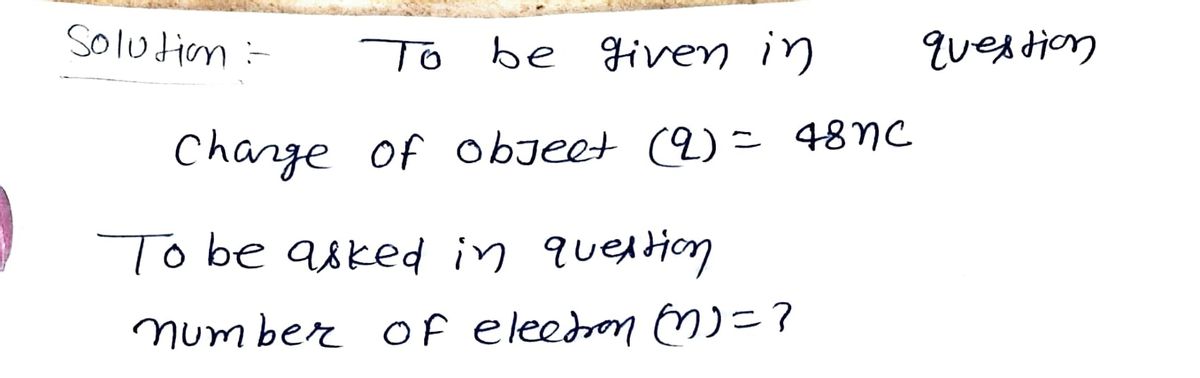 Solution :- To be given in question
Charge of object (q) = 48nC
To be asked in question
number of electron (n) = ?